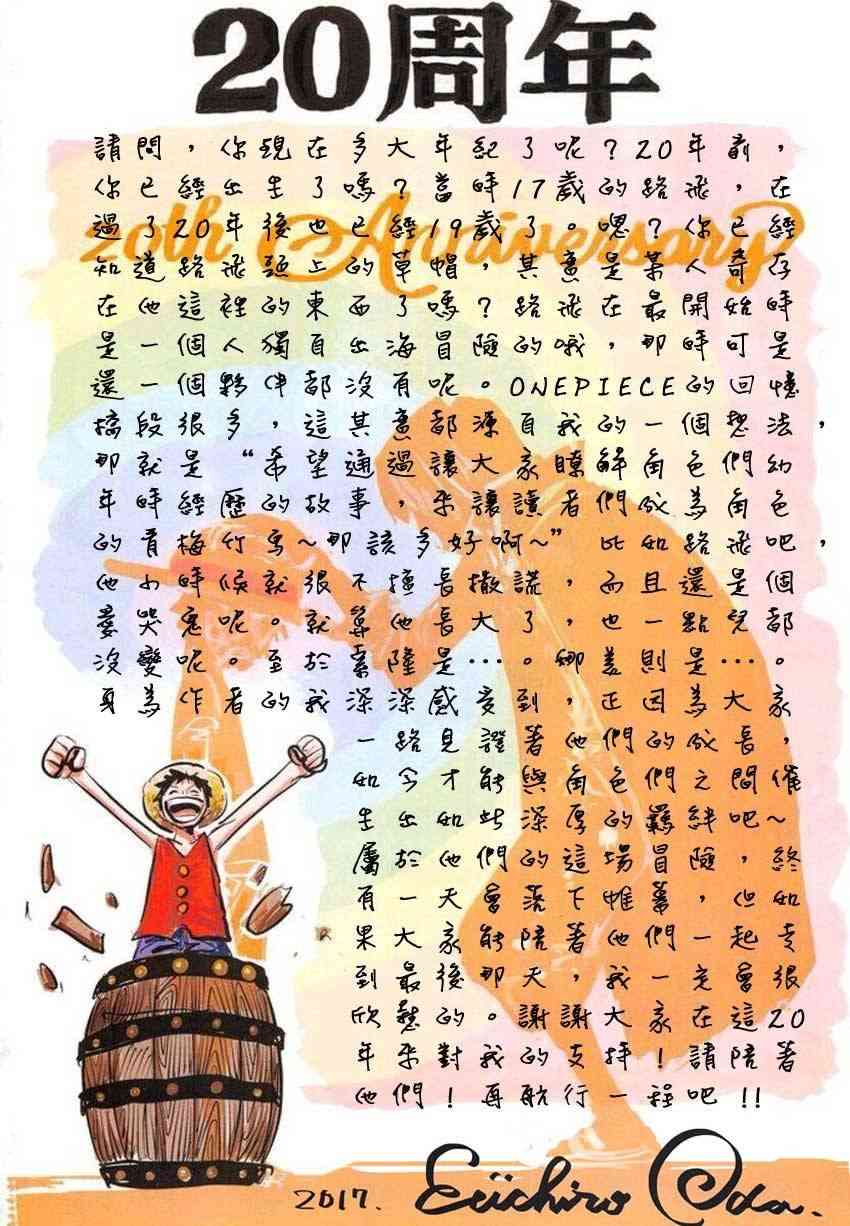 20周年
請問，你現在多大年紀了呢？20年前，
你已經出生了嗎？當時17歲的路飛，在
20th Anniversary
過了20年後也已經19歲了。嗯？你已經
知道路飛頭上的草帽，其實是某人寄存
在他這裡的東西了嗎？路飛在最開始時
是一個人獨自出海冒險的哦，那時可是
還一個夥伴都沒有呢。ONEPIECE的回憶
橋段很多，這其實都源自我的一個想法，
那就是“希望通過讓大家瞭解角色們幼
年時經歷的故事，來讓讀者們成為角色
的青梅竹馬～那該多好啊～” 比如路飛吧，
他小時候就很不擅長撒謊，而且還是個
愛哭鬼呢。就算他長大了，也一點兒都
沒變呢。至於索隆是…。娜美則是…。
身為作者的我深深感受到，正因為大家
一路見證著他們的成長，
如今才能與角色們之間催
生出如此深厚的羈絆吧～
屬於他們的這場冒險，終
有一天會落下帷幕，但如
果大家能陪著他們一起走
到最後那天，我一定會很
欣慰的。謝謝大家在這20
年來對我的支持！請陪著
他們！再航行一程吧！！
2017. Eiichiro Oda.